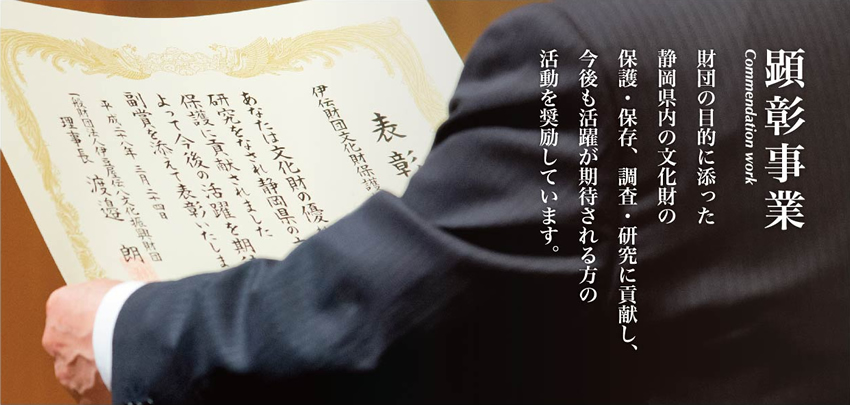 顕彰事業
Commendation work
財団の目的に添った
静岡県内の文化財の
保護・保存、調査・研究に貢献し、
今後も活躍が期待される方の
活動を奨励しています。
表彰
伊伝財団文化財保護
あなたは文化財の優
研究をなされ静岡県の
保護に貢献されました
よって今後の活躍を期
副賞を添えて表彰いたしま
平成二十八年 三月二十四日
一般財団法人伊豆屋伝八文化振興財団
理事長 渡邉 朗